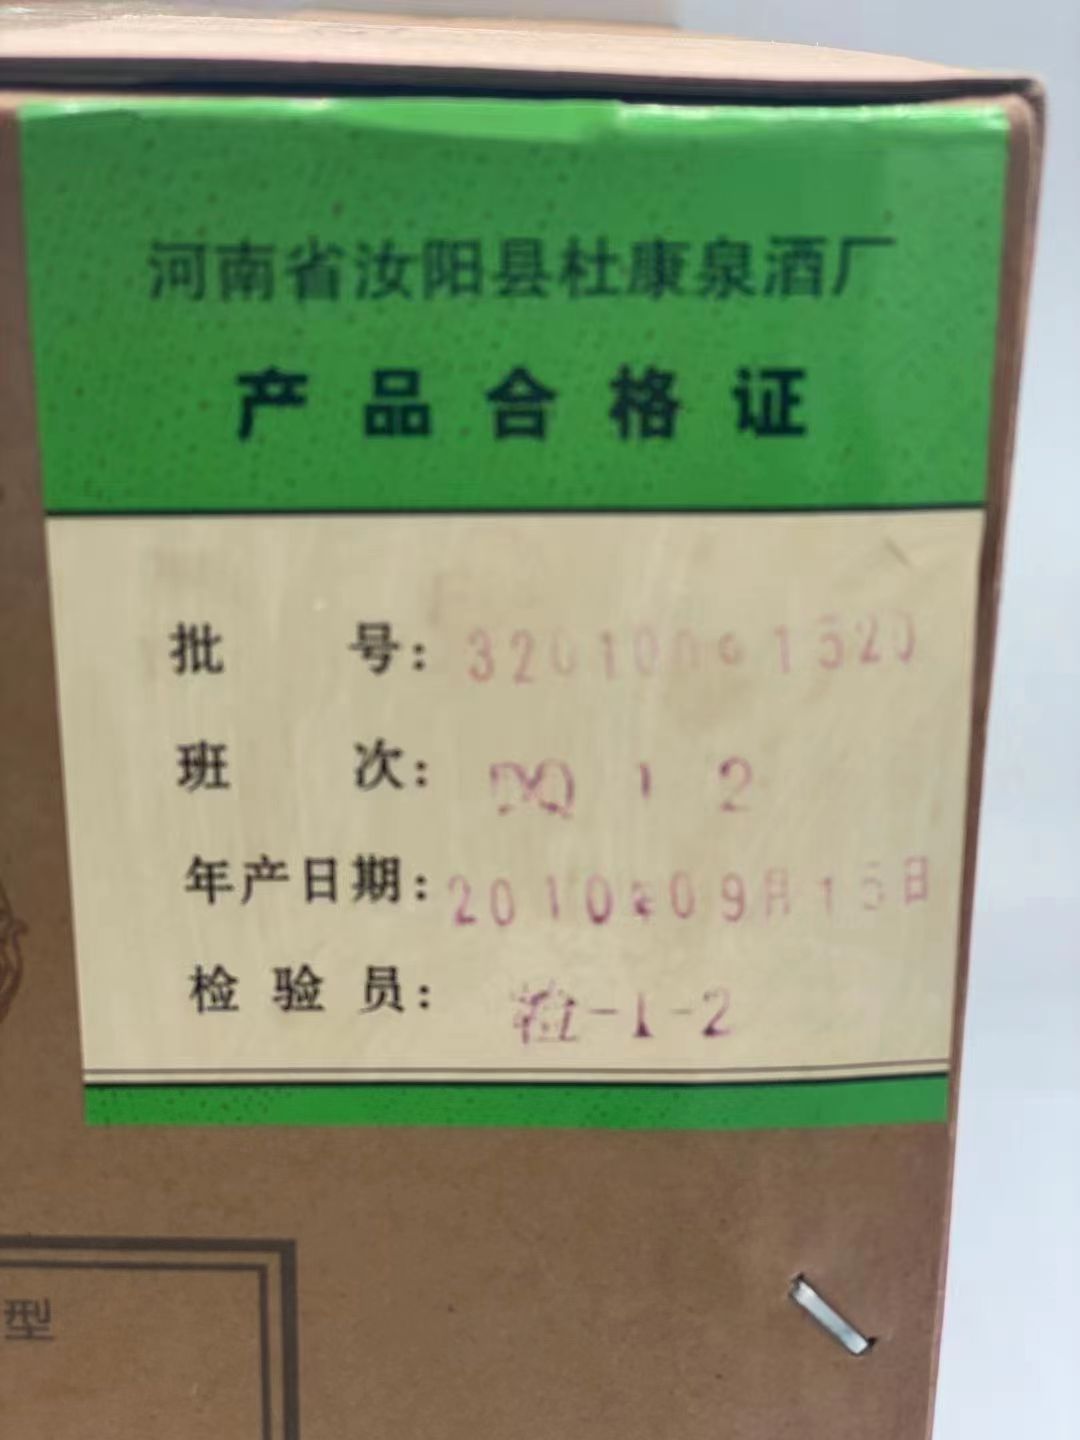 河南省汝阳县杜康泉酒厂
产品合格证
批号：
班次：DQ 1 2
年产日期：2010年09月15日
检验员：检-1-2
型